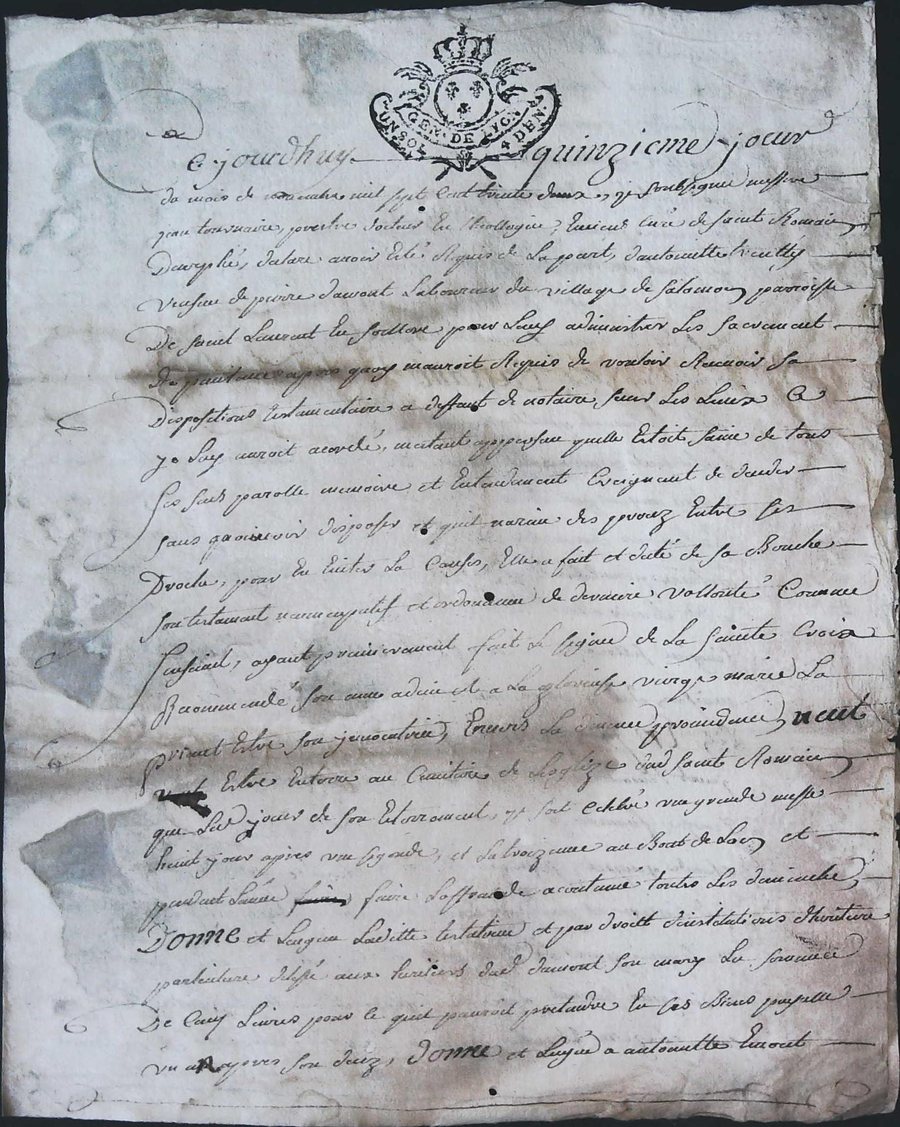 GEN. DE LYON
UN SOL 4 DEN.
Cejourdhuy quinzieme jour
du mois de mil sept cent trente deux, je soubsigné messire
jean tournaire, prestre docteur En theollogie, Enciens curé de saint Romain
declare avoir Esté Requis de La part, dantoinette
veufue de pierre dumont Laboureur du village de salomon paroisse
De saint Laurent En pour Luy administrer Les sacrement
De penitance apres quoy mauroit Requis de vouloir Recevoir sa
Dispositions testamentaire a deffaut de notaire sur Les Lieux Ce
je Luy auroit acordé, quelle Estoit saine de tous
ses sens parolle memoire et Entendement Creignant de
sans pouvoir disposer et quil narive des procez Entre ses
Proche, pour En Eviter La Cause, Elle a fait et dicté de sa Bouche
son testament noncupatif et ordonance de derniere vollonté Comme
sensuit, ayant premierement fait Le signe de La sainte Croix
Recommandé son ame a dieu et a La glorieuse vierge marie La
priant Estre son Envers La divine providence, veut
Estre Enterre au Cimitiere de Leglize dud saint Romain
que Le jour de son Enterrement, il soit celebré une grande messe
huit jour apres une segonde, et La troizieme au Bout de Lan et
pendant Lanée faire Loffrande acoutumé toutes Les dimanche,
Donne et Legue Laditte testatrice et par droitt dinstitutions dheritiere
particuliere aux heritiers dud dumont son mary La somme
De Cinq Livres pour ce quil pouroit pretendre En ses Biens payable
un an apres son decez, donne et Legue a antoinette